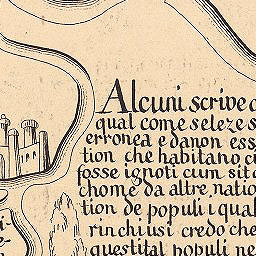 Alcuni scrive
qual come seleze s
erronea e da non ess
tion che habitano ci
fosse ignoti cum sit c
chome da altre natio
tion de populi i qual
rinchiusi credo che
questi tal populi ne